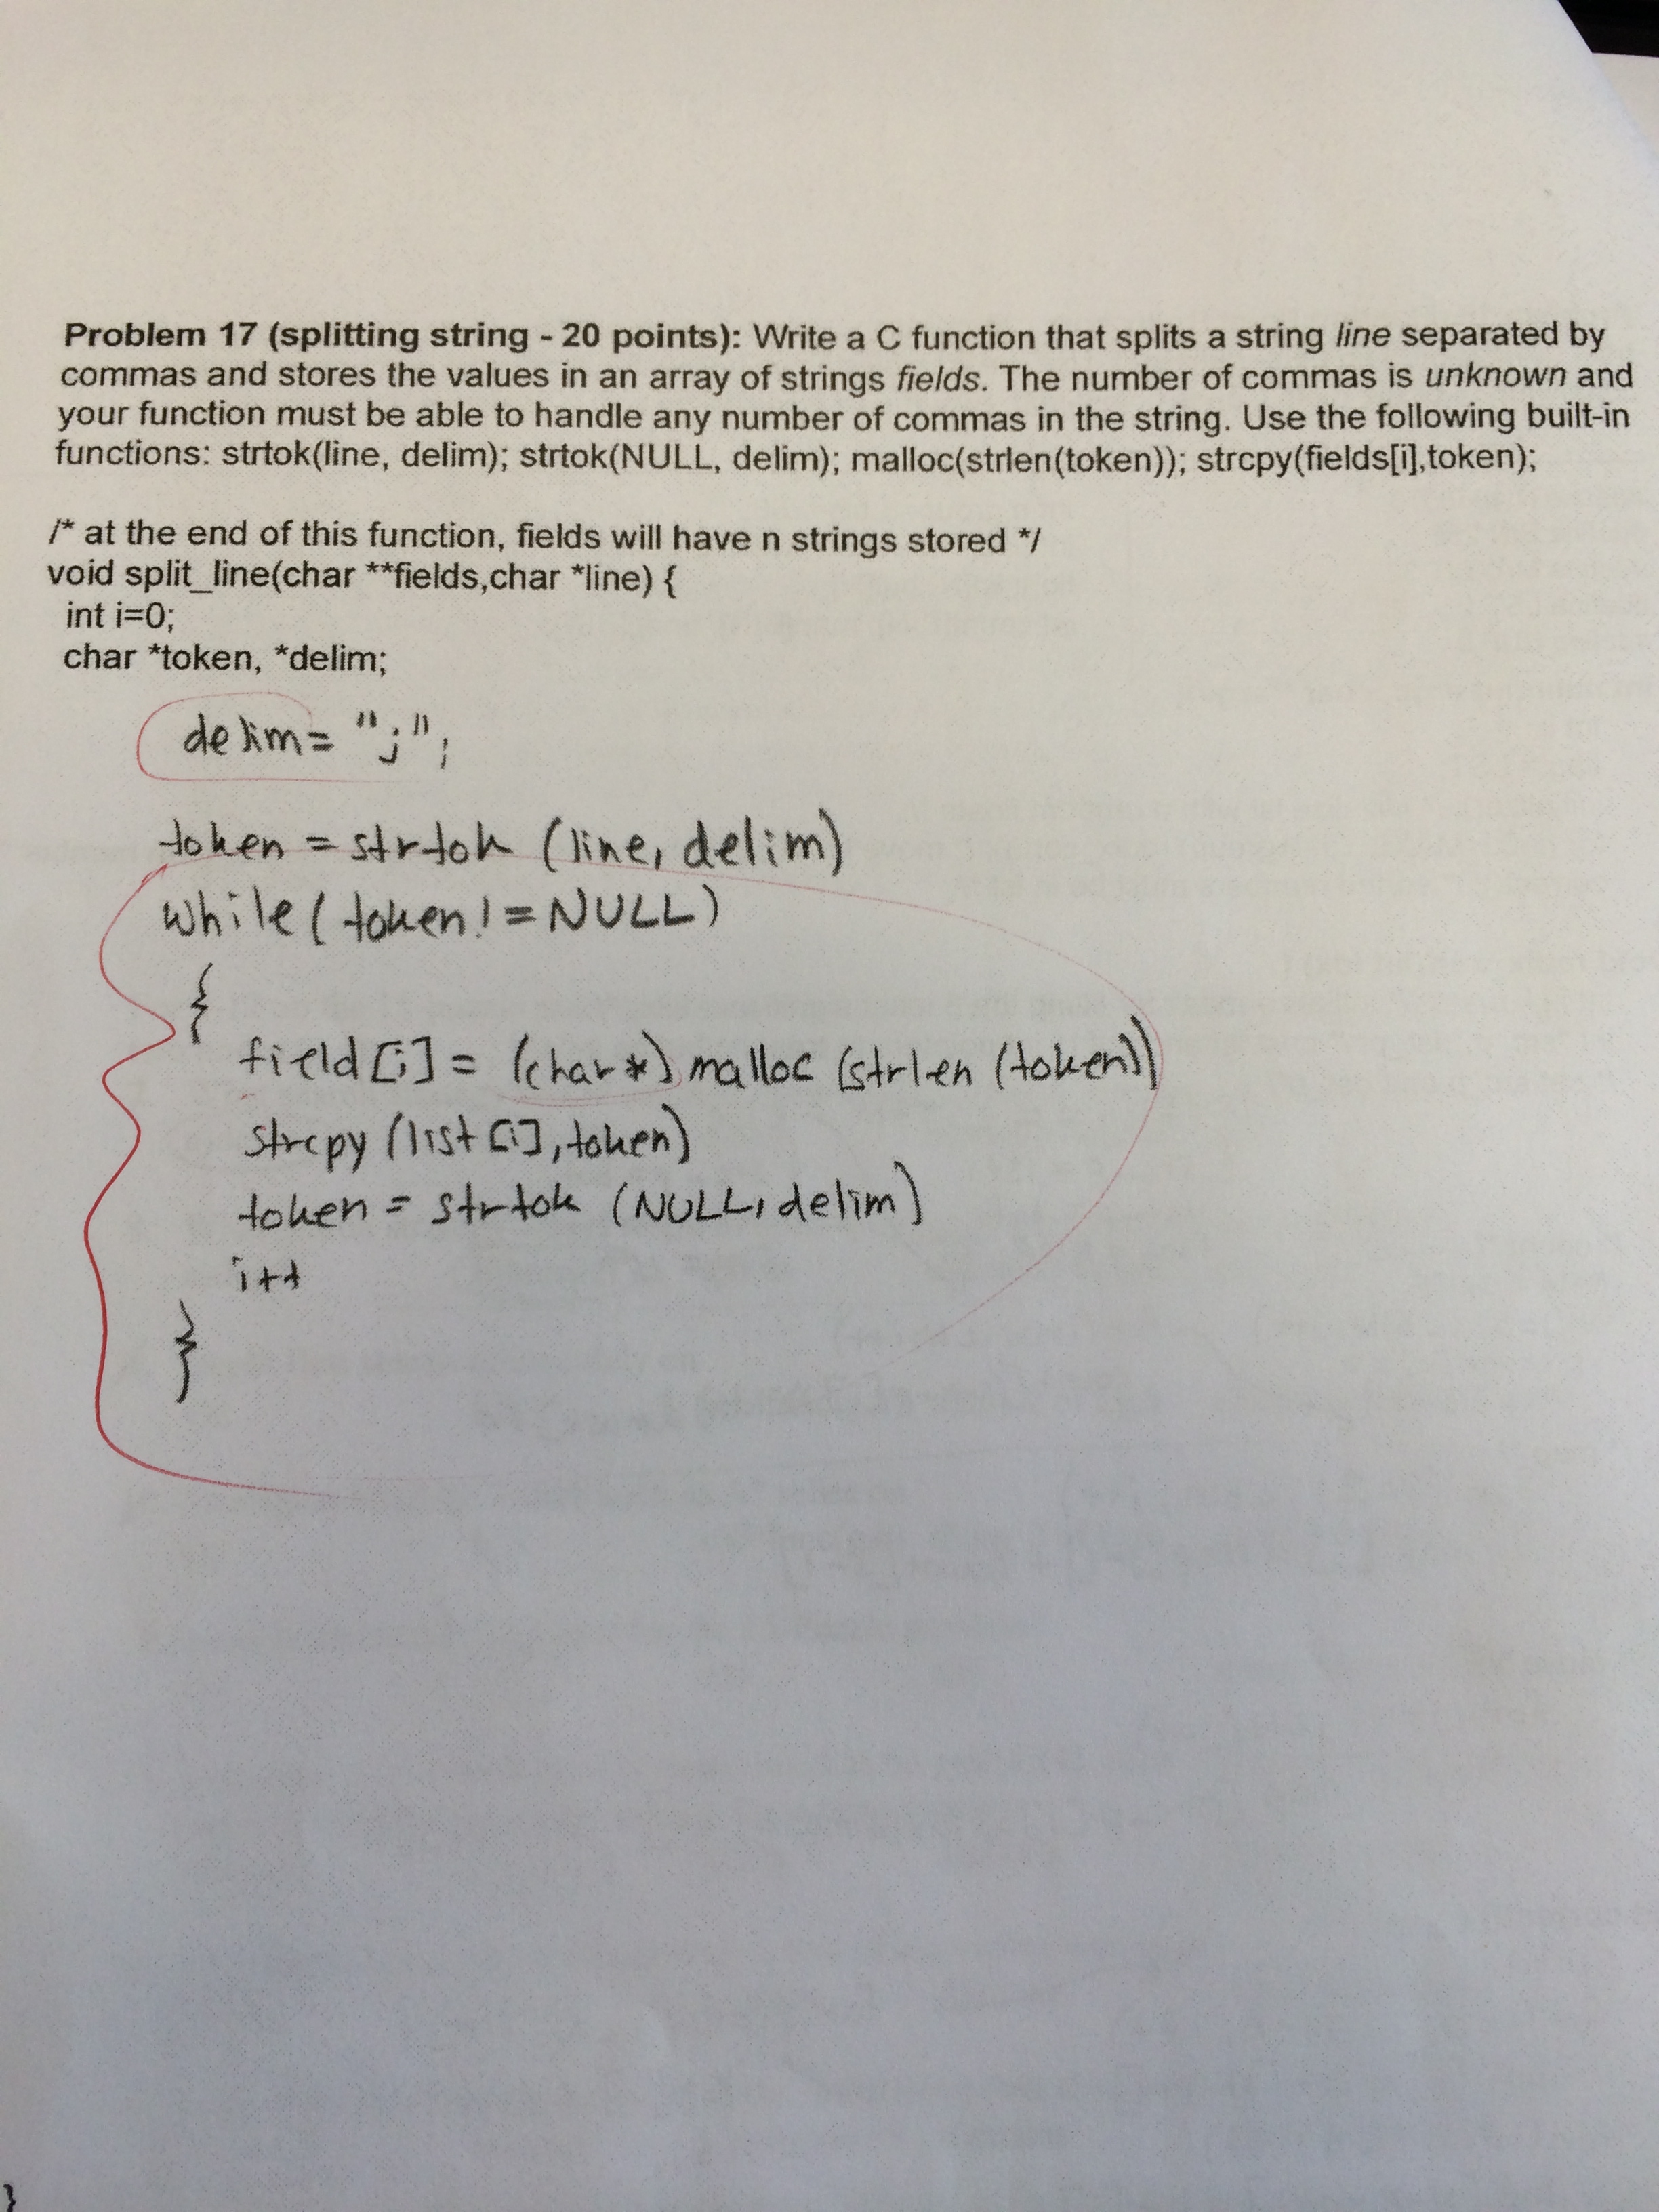 Problem 17 (splitting string - 20 points): Write a C function that splits a string line separated by
commas and stores the values in an array of strings fields. The number of commas is unknown and
your function must be able to handle any number of commas in the string. Use the following built-in
functions: strtok(line, delim); strtok(NULL, delim); malloc(strlen(token)); strcpy(fields[i],token);
/* at the end of this function, fields will have n strings stored */
void split_line(char **fields,char *line) {
int i=0;
char *token, *delim;
delim= ";";
token = strtok (line, delim)
while( token != NULL)
{
field [i] = (char*) malloc (strlen (token))
strcpy (list [i], token)
token = strtok (NULL, delim)
i++
}
}